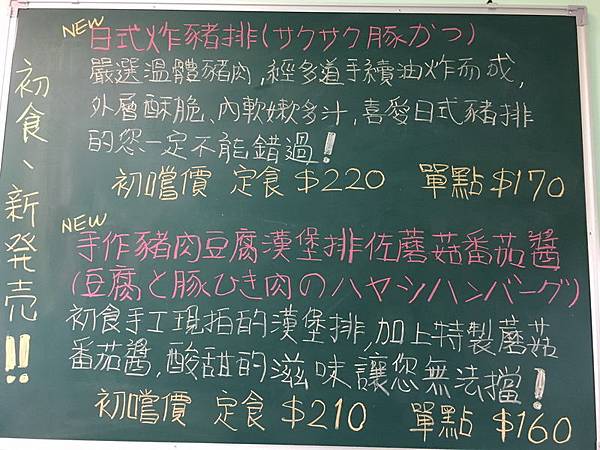 初食、新発売!!
NEW
日式炸豬排(サクサク豚かつ)
嚴選溫體豬肉,經多道手續油炸而成,
外層酥脆、內軟嫩多汁,喜愛日式豬排
的您一定不能錯過!
初嚐價 定食 $220 單點 $170
NEW
手作豬肉豆腐漢堡排佐蘑菇番茄醬
(豆腐と豚ひき肉のハヤシハンバーグ)
初食手工現拍的漢堡排,加上特製蘑菇
番茄醬,酸甜的滋味讓您無法擋!
初嚐價 定食 $210 單點 $160